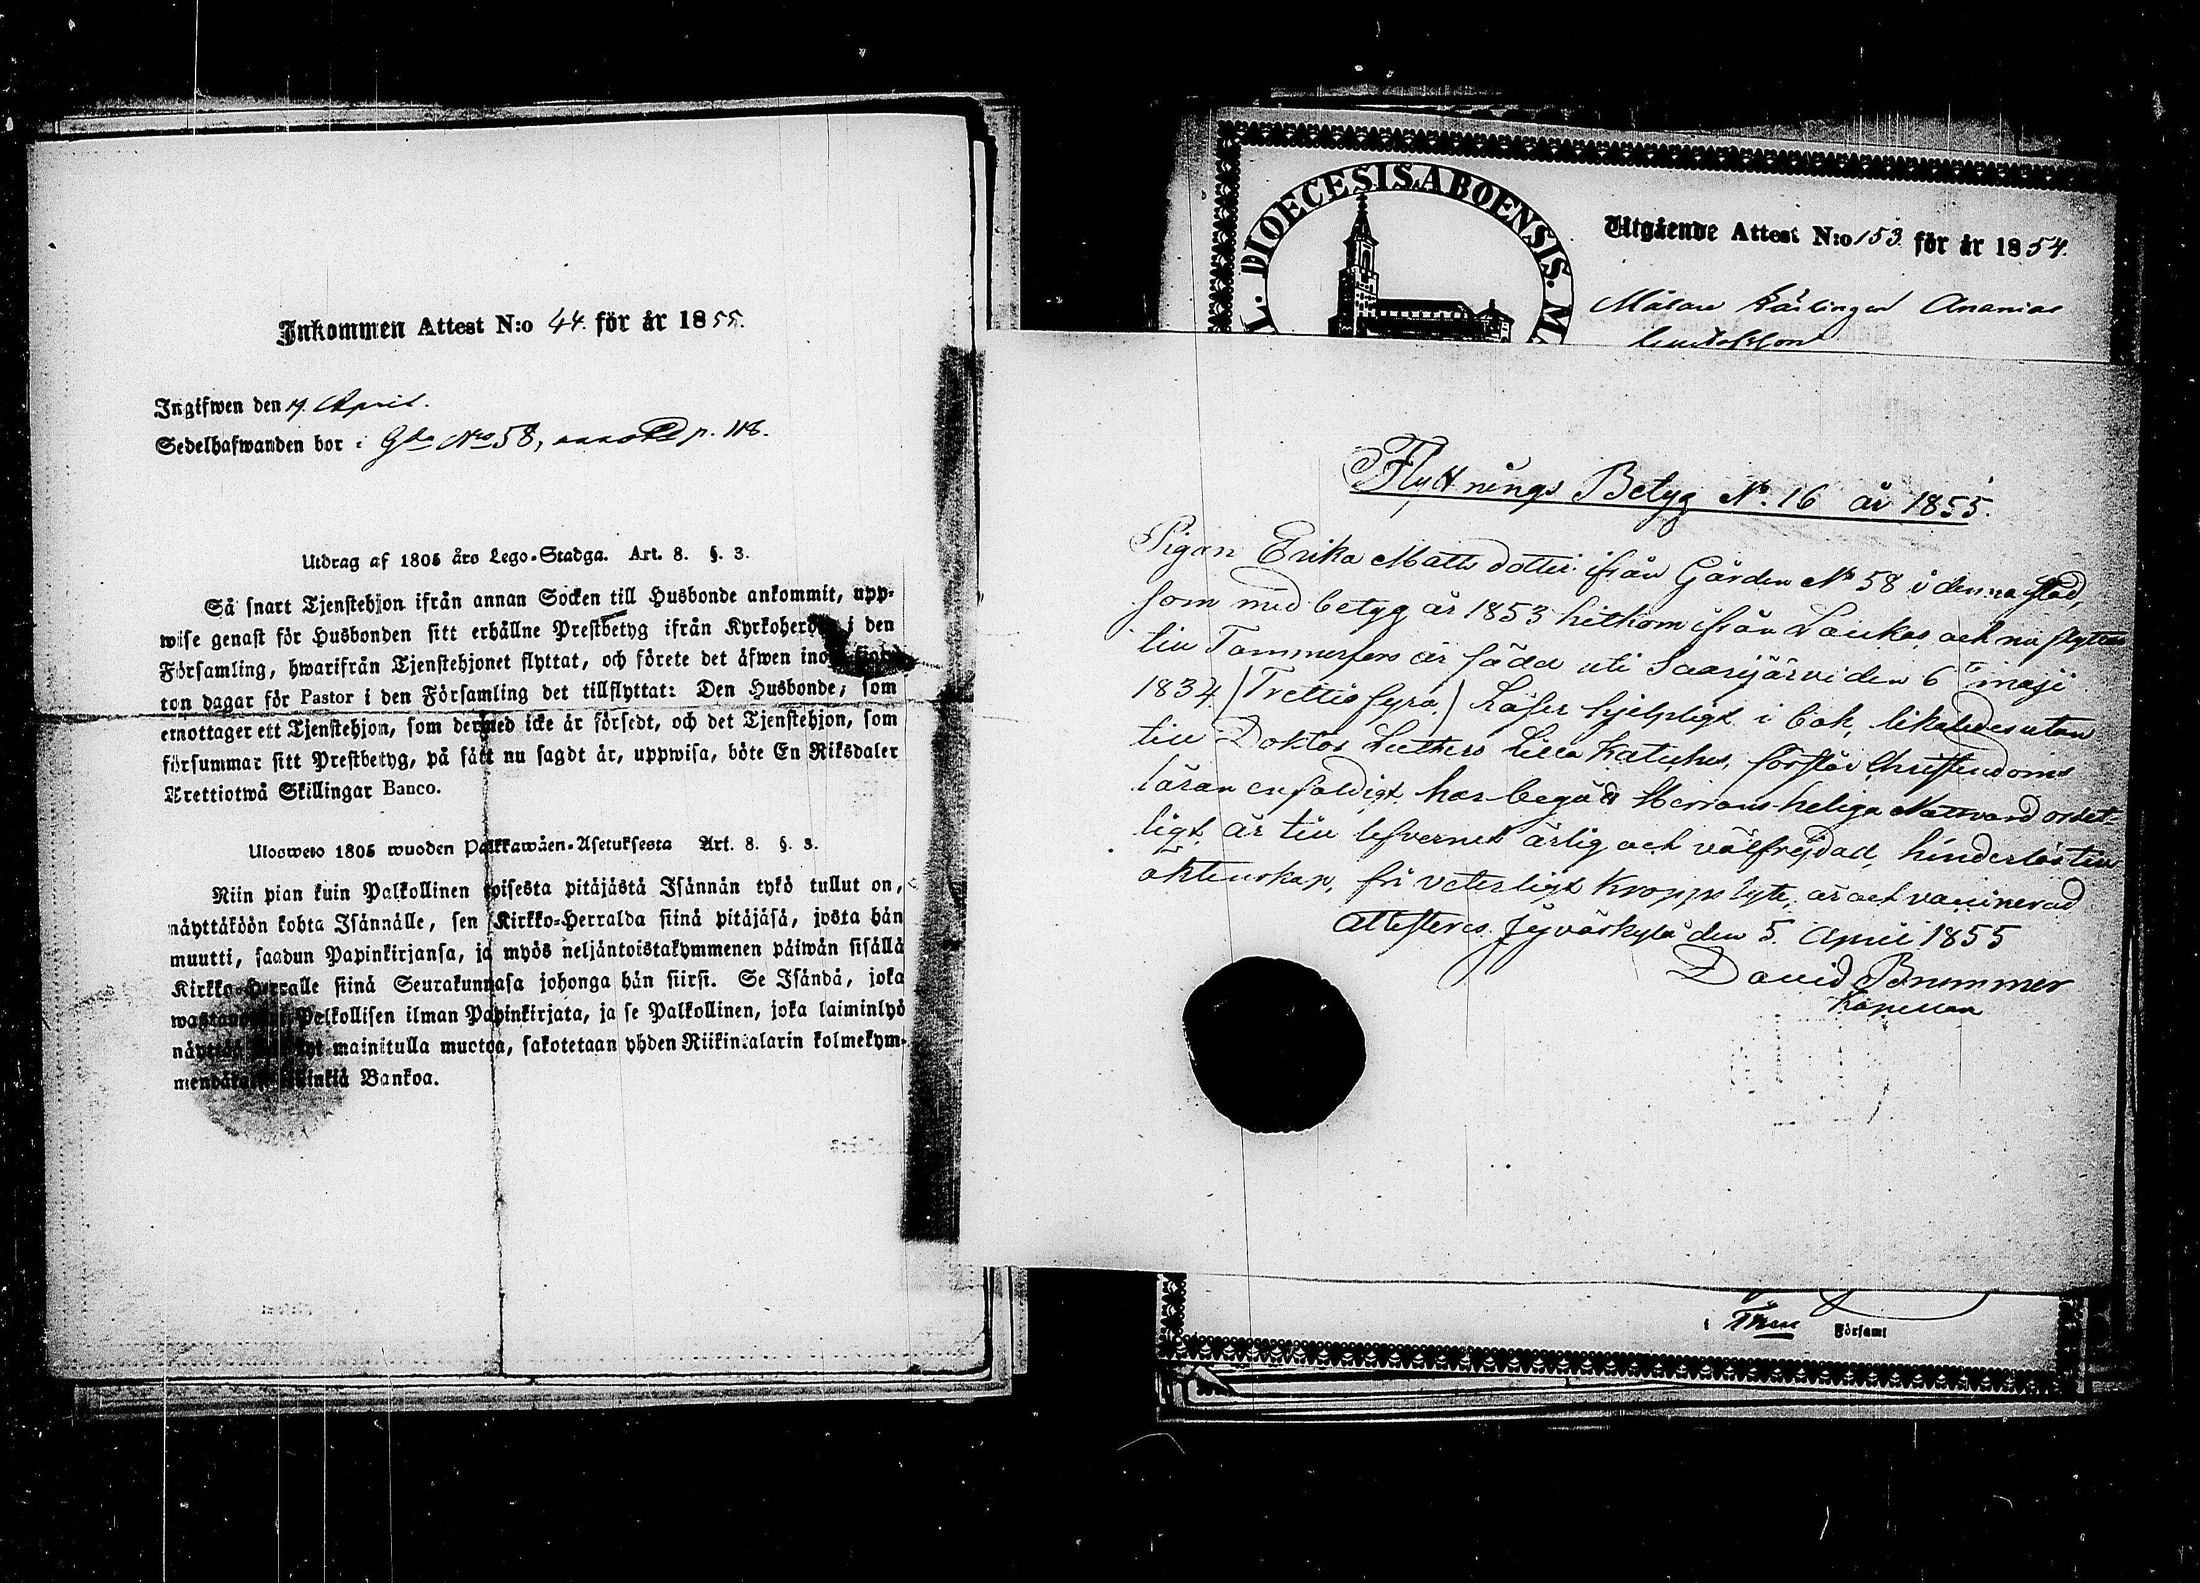 Inkommen Attest N:o 44. för år 1855.
Ingifwen den 19. April.
Sedelhafwanden bor i Gdn No 58, p. 118.
Utdrag af 1805 års Lego-Stadga. Art. 8. §. 3.
Så snart Tjenstehjon ifrån annan Socken till Husbonde ankommit, upp-
wise genast för Husbonden sitt erhållne Prestbetyg ifrån i den
Församling, hwarifrån Tjenstehjonet flyttat, och förete det äfwen
ton dagar för Pastor i den Församling det tillflyttat: Den Husbonde, som
emottager ett Tjenstehjon, som dermed icke är försedt, och det Tjenstehjon, som
försummar sitt Prestbetyg, på sätt nu sagdt är, uppwisa, böte En Riksdaler
Trettiotwå Skillingar Banco.
Ulosweto 1805 wuoden Palkkawäen-Asetuksesta Art. 8. §. 3.
Niin pian kuin Palkollinen toisesta pitäjästä Isännän tykö tullut on,
näyttäköön kohta Isännälle, sen Kirkko-Herralda siinä pitäjäsä, josta hän
muutti, saadun Papinkirjansa, ja myös neljäntoistakymmenen päiwän sisällä
Kirkko-Herralle siinä Seurakunnasa johonga hän siirsi. Se Isändä, joka
Palkollisen ilman Papinkirjata, ja se Palkollinen, joka laiminlyö
mainitulla muotoa, sakotetaan yhden Riikintalarin kolmekym-
Bankoa.
L. DIOECESIS.ABOENSIS. MA
Utgående Attest N:o 153. för år 1854.
Målare Ananias
Gustafsson
Flyttnings Betyg No. 16 år 1855.
Pigan Erika Matts dotter ifrån Gården No 58 i denna stad,
som med betyg år 1853 hitkom ifrån Laukas, och nu flyttar
till Tammerfors är född uti Saarijärvi den 6 maji
1834 / Trettiofyra / Läser hjelpligt i bok, likaledes utan
till Doktor Luthers Lilla Kateches, förstår Christendoms
läran enfaldigt, har begådt Herrans heliga Nattvard ordet-
ligt, är till lefvernet ärlig och välfrejdad, hinderlös till
äktenskap, fri veterligt kroppslyte, är ock vaccinerad
attesteras. Jyväskylä den 5. April 1855
David Brummer
Kapellan
i
Församl